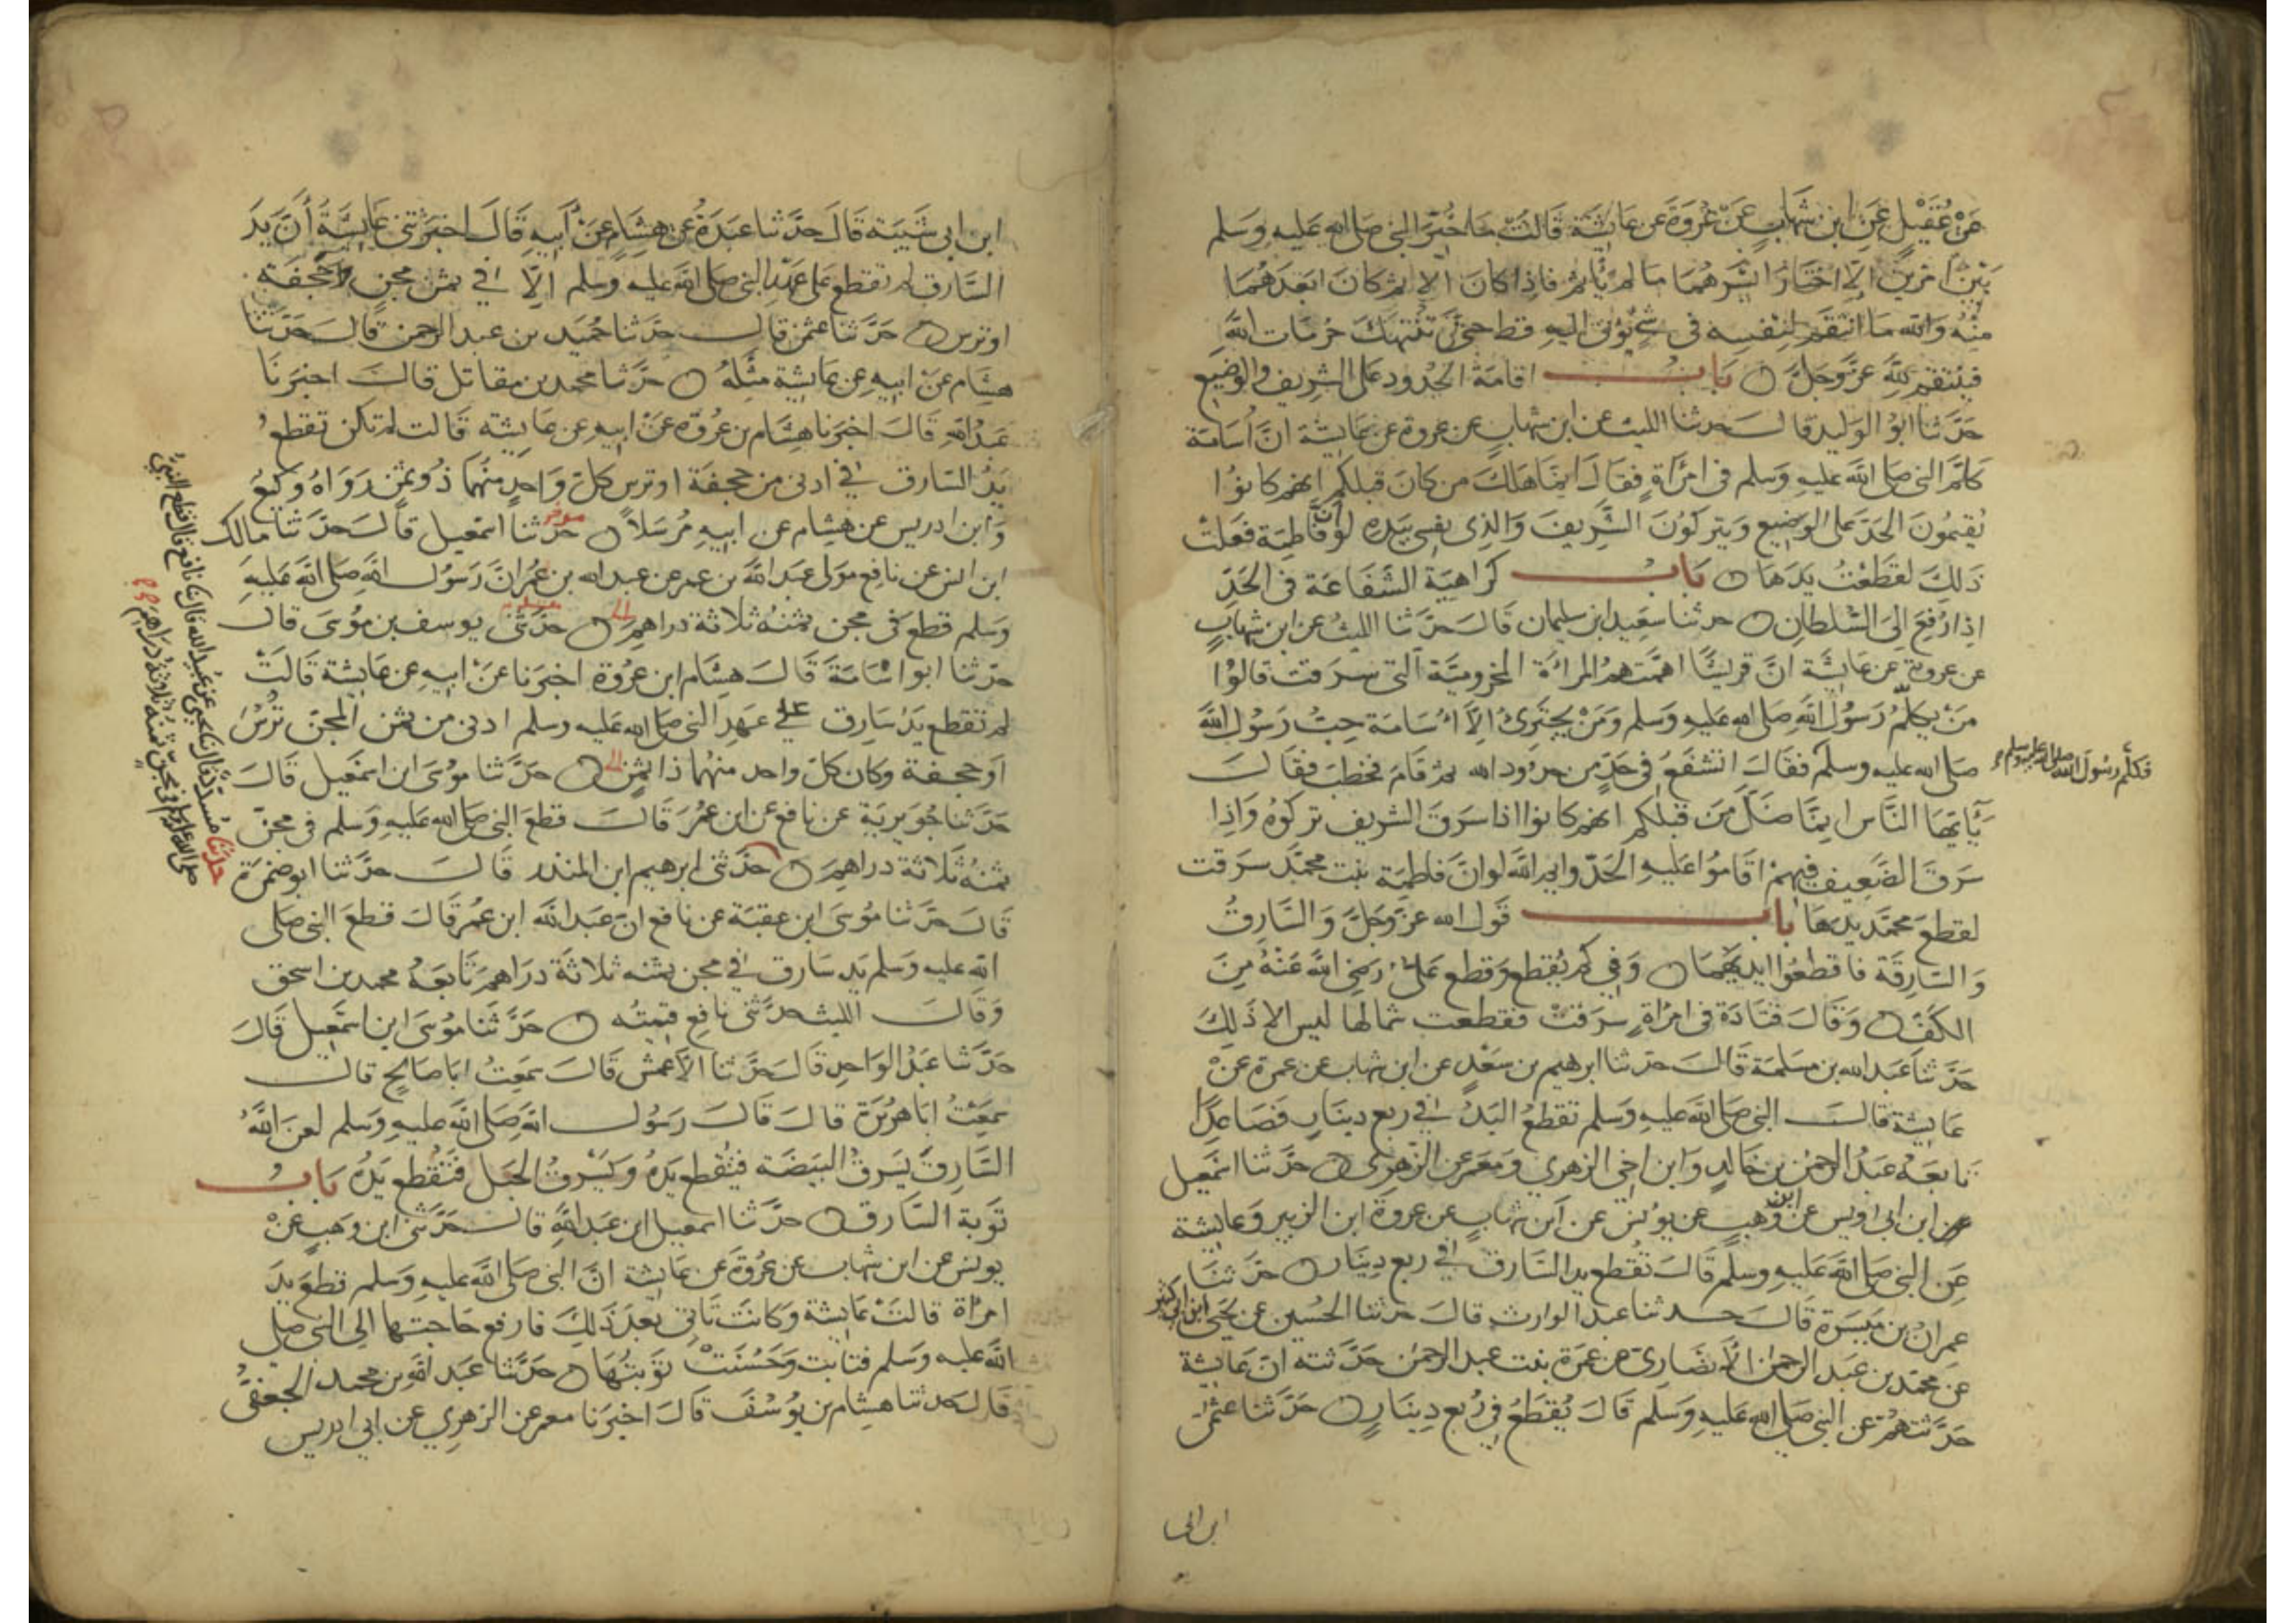 عَنْ عُقَيْلٍ عَنِ ابن شهاب عَنْ عُرْوَةَ عن عَايِشَة قَالَتْ مَا خُيِّرَ النبي صلى الله عَليه وَسَلم
بَيْنَ امرين الا اختَارَ ايسَرهُمَا مَا لم يَأثم فاِذا كانَ الاثم كانَ ابعَدَهُمَا
مِنْهُ وَالله مَا انتقَمَ لِنَفْسِهِ في شيْ يُؤتى اليهِ قط حتى تُنتَهَكَ حُرمَات الله
فيَنتقم لله عَزَّ وَجَلّ بَابُ اقامَة الحدُود على الشريف والوضيع
حَدَّثنا ابوُ الوَليد قالَ حدثنا الليث عن ابن شهاب عن عروة عن عايشة انَّ أُسَامَة
كلّمَ النبي صلى الله عليه وَسَلم في امْرَأةٍ فقالَ انمَا هَلكَ من كان قبلكم انهم كانوُا
يُقيمُونَ الحدّ على الوضيع وَيتركوُنَ الشَّرِيفَ وَالذِي نفسي بيَدهِ لو انّ فاطِمَة فَعَلتْ
ذَلكَ لقَطعْتُ يَدَهَا بَابُ كرَاهِيَة الشفَاعَة في الحَدّ
اِذا رُفعَ الى السُّلطانِ حدثنا سَعِيد ابن سليمان قالَ حَدَّثنا الليثُ عن ابن شهابٍ
عن عروة عن عايشَة انَّ قريشًا اهَمّتهمُ المرأة المخزوميَّة التي سَرَقت قالوُا
مَنْ يكلّمُ رَسُولَ الله صَلى الله عَليه وسَلم وَمَنْ يجترِئُ الاّ أسَامَة حِبُّ رَسُول الله
صَلى الله عليه وسلم فقالَ اتشفَعُ في حَدٍّ من حدُود الله ثم قامَ فخطبَ فقالَ
فكلَّم رسُولَ الله صلى الله عليه وسلم
يَآيّهَا النَّاس انمَّا ضَلّ مَن قبلكم انهم كانوُا اذا سَرَقَ الشريف تركوُهُ وَاذا
سَرَقَ الضّعِيف فيهِمْ اقامُوا عَليهِ الحَدّ وايم الله لو انّ فاطمَة بنت محمّدَ سَرقت
لقطعَ محمّد يدهَا بابُ قَول الله عَزّ وَجَلّ وَالسَّارِقُ
وَالسَّارِقَة فاقطعُوُا ايديَهُمَا وَفي كم يُقطع وَقطع عَليٌّ رَضيَ اللهُ عَنْهُ مِنَ
الكَفّ وَقالَ قتَادَة في امرَأةٍ سرَقتْ فقطعت شمالها ليس الا ذَلِكَ
حَدَّثنا عَبد الله بن مَسْلمَة قالَ حدثنا ابرهيم بن سَعْدٍ عن ابن شهاب عن عمرة عنْ
عَايشة قالتَ النبي صَلى الله عَليهِ وَسَلم تقطعُ اليَدُ في ربع دينَارٍ فَصَاعِدًا
تابَعَهُ عَبدُ الرحمن بن خَالدٍ وَابن اخي الزهري وَمَعمَر عن الزُّهري حَدَّثنا اسمعيل
ابن ابي اوَيس عن ابن وَهبٍ عن يوُنسَ عن ابن شهابٍ عن عروَةَ ابن الزبير وَعَايشة
عَنِ النبي صَلى الله عَليهِ وسلم قالَ تُقطع يد السَّارق في ربع دِينَار حَدّثنا
عِمرانُ بن مَيسَرة قالَ حدثنا عبد الوارث قالَ حدثنا الحُسين عن يحيى ابن ابي كثير
عن محمّد بن عَبد الرحمن الانصَاريّ عن عمرَة بنت عبد الرحمن حَدَّثته انّ عَايشة
حَدَّثتهُمْ عن النبي صَلى الله عَليهِ وَسَلم قَالَ يُقْطَعُ في رُبع دِينَارٍ حَدَّثنا عثمن
ابن ابي
ابن ابي شَيبَة قَالَ حدَّثنا عبَدَةُ عن هِشَامٍ عَنْ أبيهِ قَالَ اخبَرَتني عَايشَةُ أنَّ يَدَ
السَّارق لم تقطع على عَهْدِ النبي صلى الله عليه وسلم الاّ في ثمن مجن حَجَفَة
اوترس حَدَّثنا عثمن قال حدَّثنا حُمَيد بن عبد الرحمن قالَ حَدّثنا
هشَام عنْ ابيهِ عن عَايشة مثْلهُ حَدَّثنا محمد بن مقاتل قالَ اخبَرَنَا
عَبْد الله قالَ اخبَرنا هشَام بن عُروَة عنْ ابيهِ عن عَايشَه قالت لم تكن تقطعُ
يَدُ السَّارق في ادنى من حجفَة اوترسٍ كلّ وَاحِدٍ منهُما ذُو ثمَنٍ رَوَاهُ وَكيعُ
وَابن ادريس عن هِشام عن ابيهِ مُرْسَلاً حدثنا اسمعيل قالَ حَدَّثنا مالك
ابن انس عن نافِع مَولى عَبد الله بن عمر عن عبد الله بن عُمَر انَّ رَسُولَ الله صَلى الله عَليهِ
وَسَلم قطعَ في مجن ثمنُهُ ثلاثة دراهِم حَدّثني يوسف بن مُوُسَى قالَ
حَدّثنا ابو اسَامَةَ قَالَ هِشَام ابن عُروَة اخبَرنا عنْ ابيهِ عن عَايشة قالتْ
لم تقطع يَدُ سَارِق على عَهدِ النبي صلى الله عَليه وسلم ادنى من ثمن المجنّ تُرْس
اوحجفة وكان كلّ واحد منهُما ذا ثمنٍ حَدَّثنا مُوُسَى ابن اسمعيل قالَ
حَدّثنا جُوَيرِيَة عن نافع عن ابن عُمرَ قالَ قطعَ النبي صَلى الله عَليهِ وَسَلم في مجنّ
ثمنُهُ ثَلاثة دراهِمَ حَدّثني ابرهيم ابن المنذر قالَ حدَّثنا ابو ضمْرَة
قالَ حدّثنا مُوُسَى ابن عقبَة عن نافع انّ عَبد الله ابن عُمرَ قالَ قطعَ النبي صَلى
الله عليه وَسَلم يَد سَارق في مجن ثمنه ثلاثَة درَاهم تَابَعَهُ محمد بن اسحق
وَقالَ الليث حدَّثني نافع قيمتُه حَدَّثنا مُوُسَى ابن اسمعيل قالَ
حَدَّثنا عَبْد الوَاحِدِ قالَ حَدَّثنا الاَعمش قالَ سَمِعتُ ابَا صَالِحٍ قالَ
سَمِعْتُ ابَا هُرَيْرَة قالَ قالَ رَسُول الله صَلى الله عليهِ وَسَلم لعنَ اللهُ
السَّارِقَ يَسرِقُ البَيضَة فتُقطع يدُهُ وَيَسْرِقُ الحَبل فَتُقطع يَدُهُ بَابُ
توَبة السَّارق حدَّثنا اسمعيل ابن عَبد الله قالَ حَدَّثني ابن وَهبٍ عَنْ
يونس عن ابن شهاب عن عُروَة عَن عَايشة انَّ النبي صَلى الله عليهِ وَسَلم قطعَ يدَ
امرأة قالتْ عَايشة وَكانت تَاتي بَعدَ ذَلِكَ فارفع حَاجَتهَا الى النبي صَلى
الله عليه وَسَلم فتابت وَحَسُنَتْ تَوَبتُهَا حَدَّثنا عَبد الله بن محمد الجعفي
قالَ حدثنا هشام بن يوُسُفَ قالَ اخبرَنا معمر عن الزهري عن ابي ادريس
حدثنا مُسدَّد قال نا يحيى عن عُبيد الله قال نا نافع قال قطع النبيُّ
صلى الله عليه وسلم في مجنّ ثمنه ثلاثة دراهم